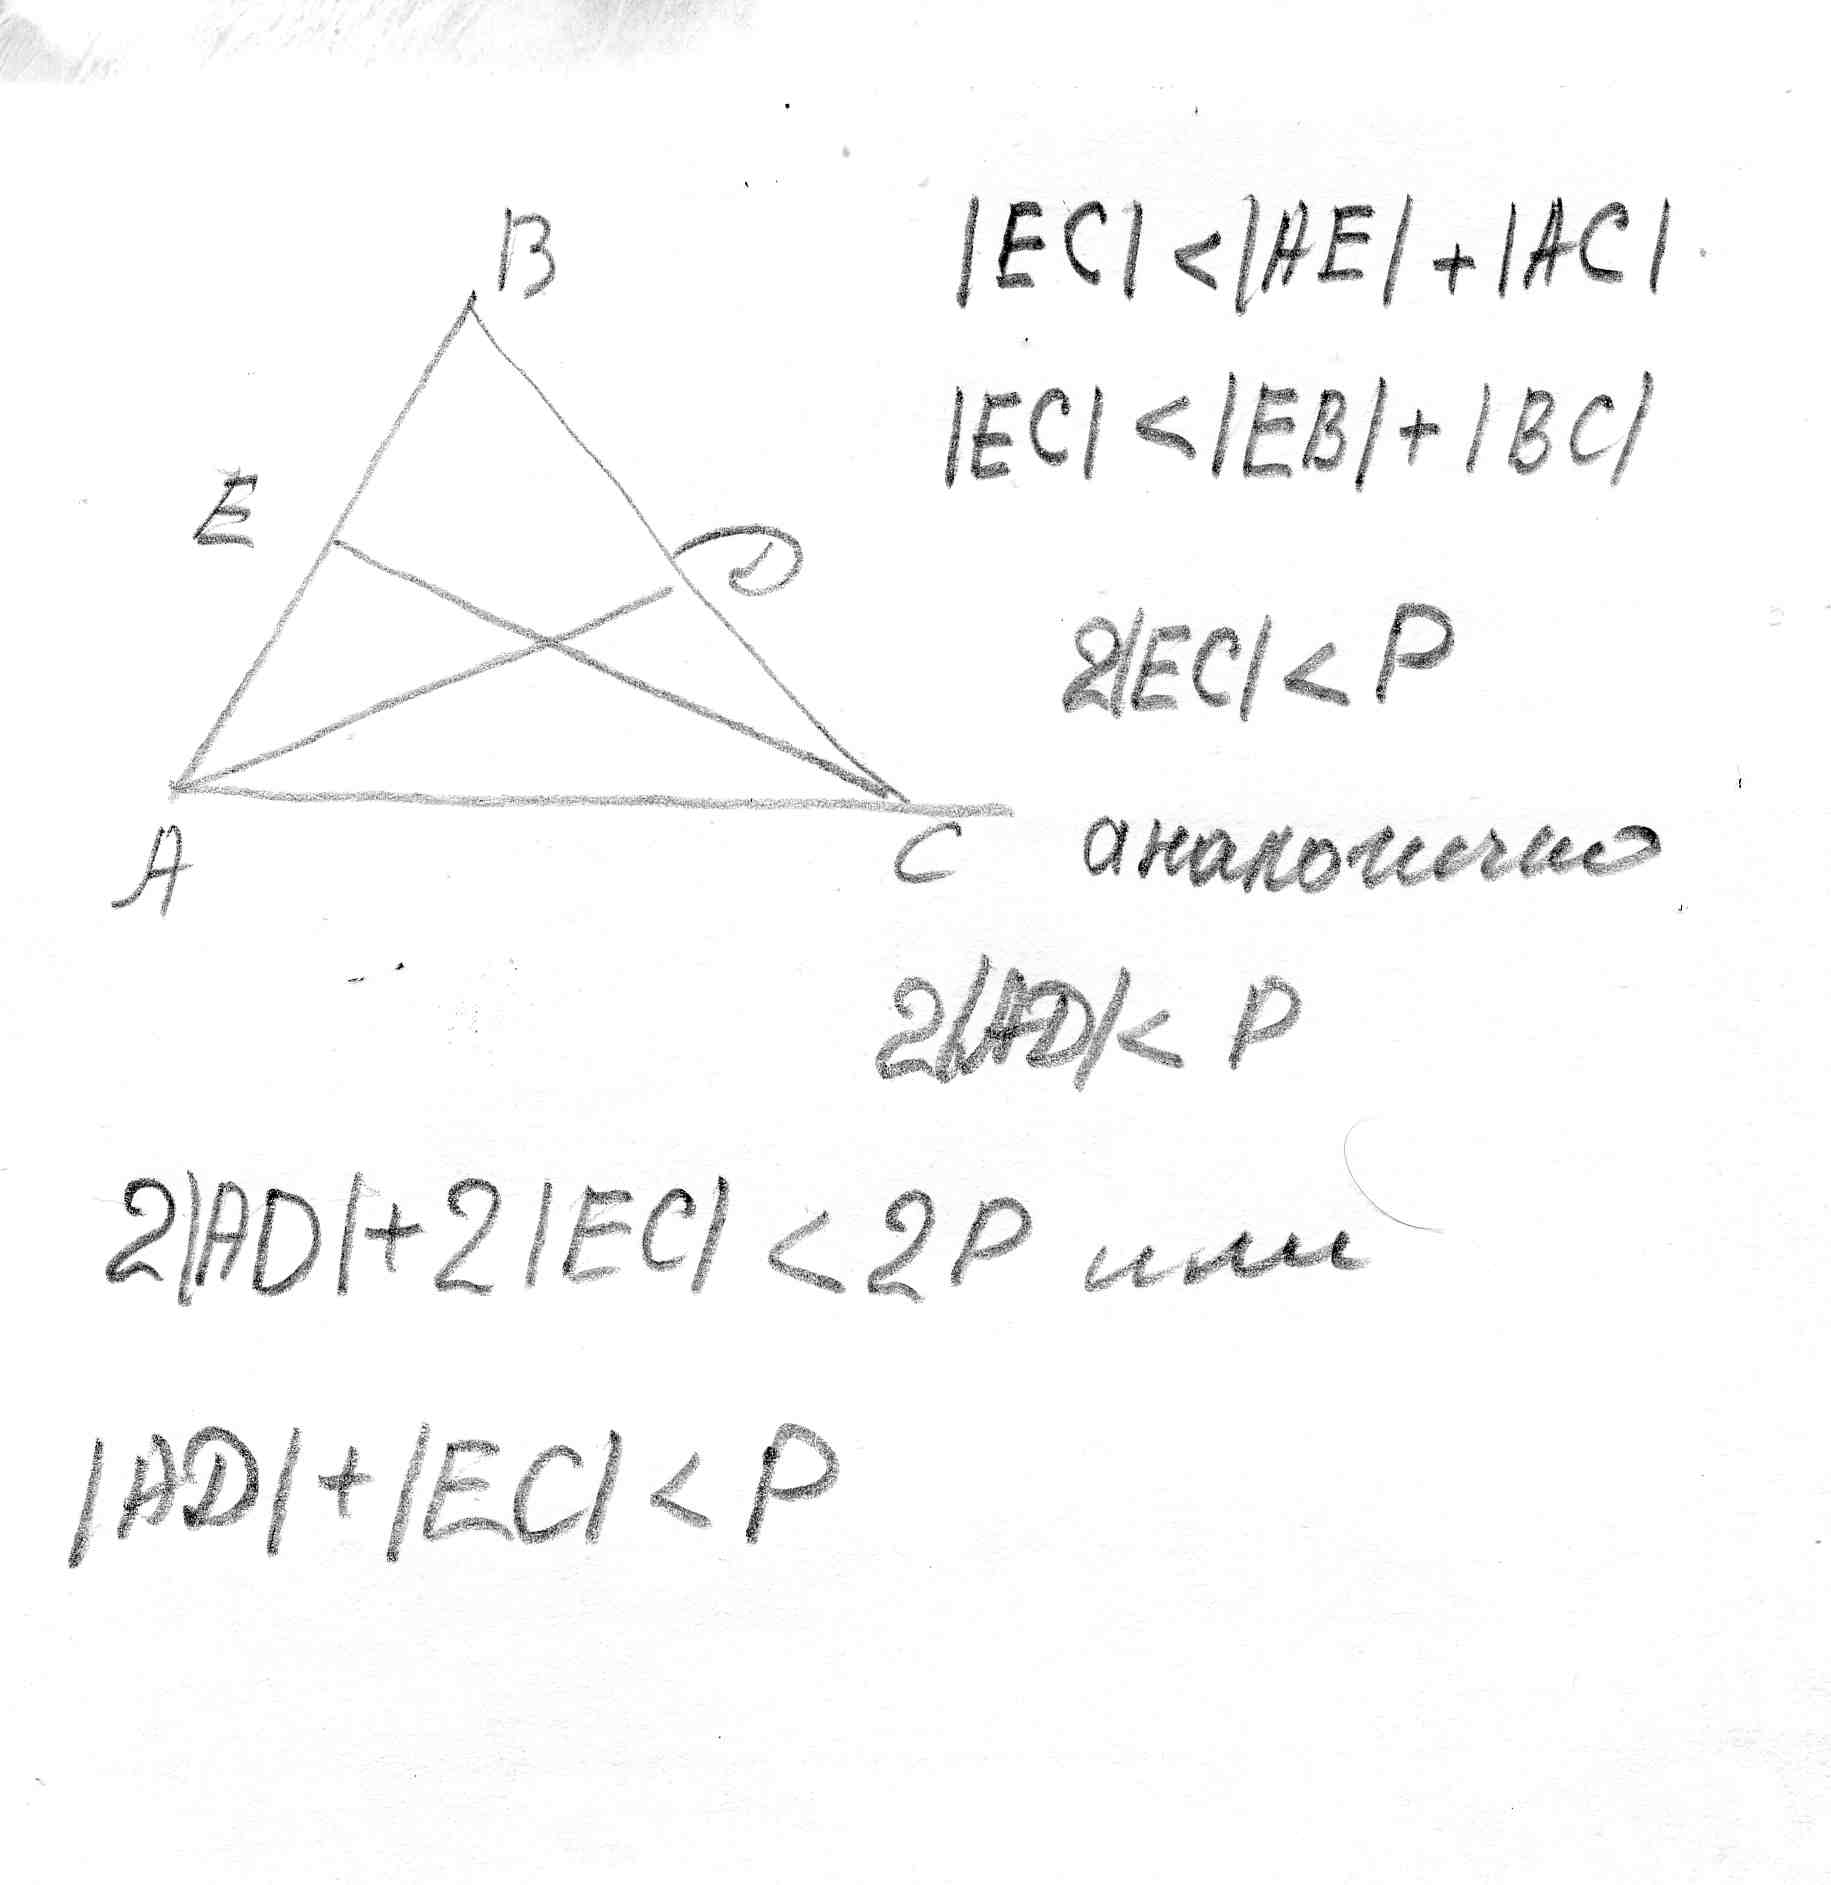 B
|EC| < |AE| + |AC|
|EC| < |EB| + |BC|
E
D
2|EC| < P
A
C
аналогично
2|AD| < P
2|AD| + 2|EC| < 2P или
|AD| + |EC| < P